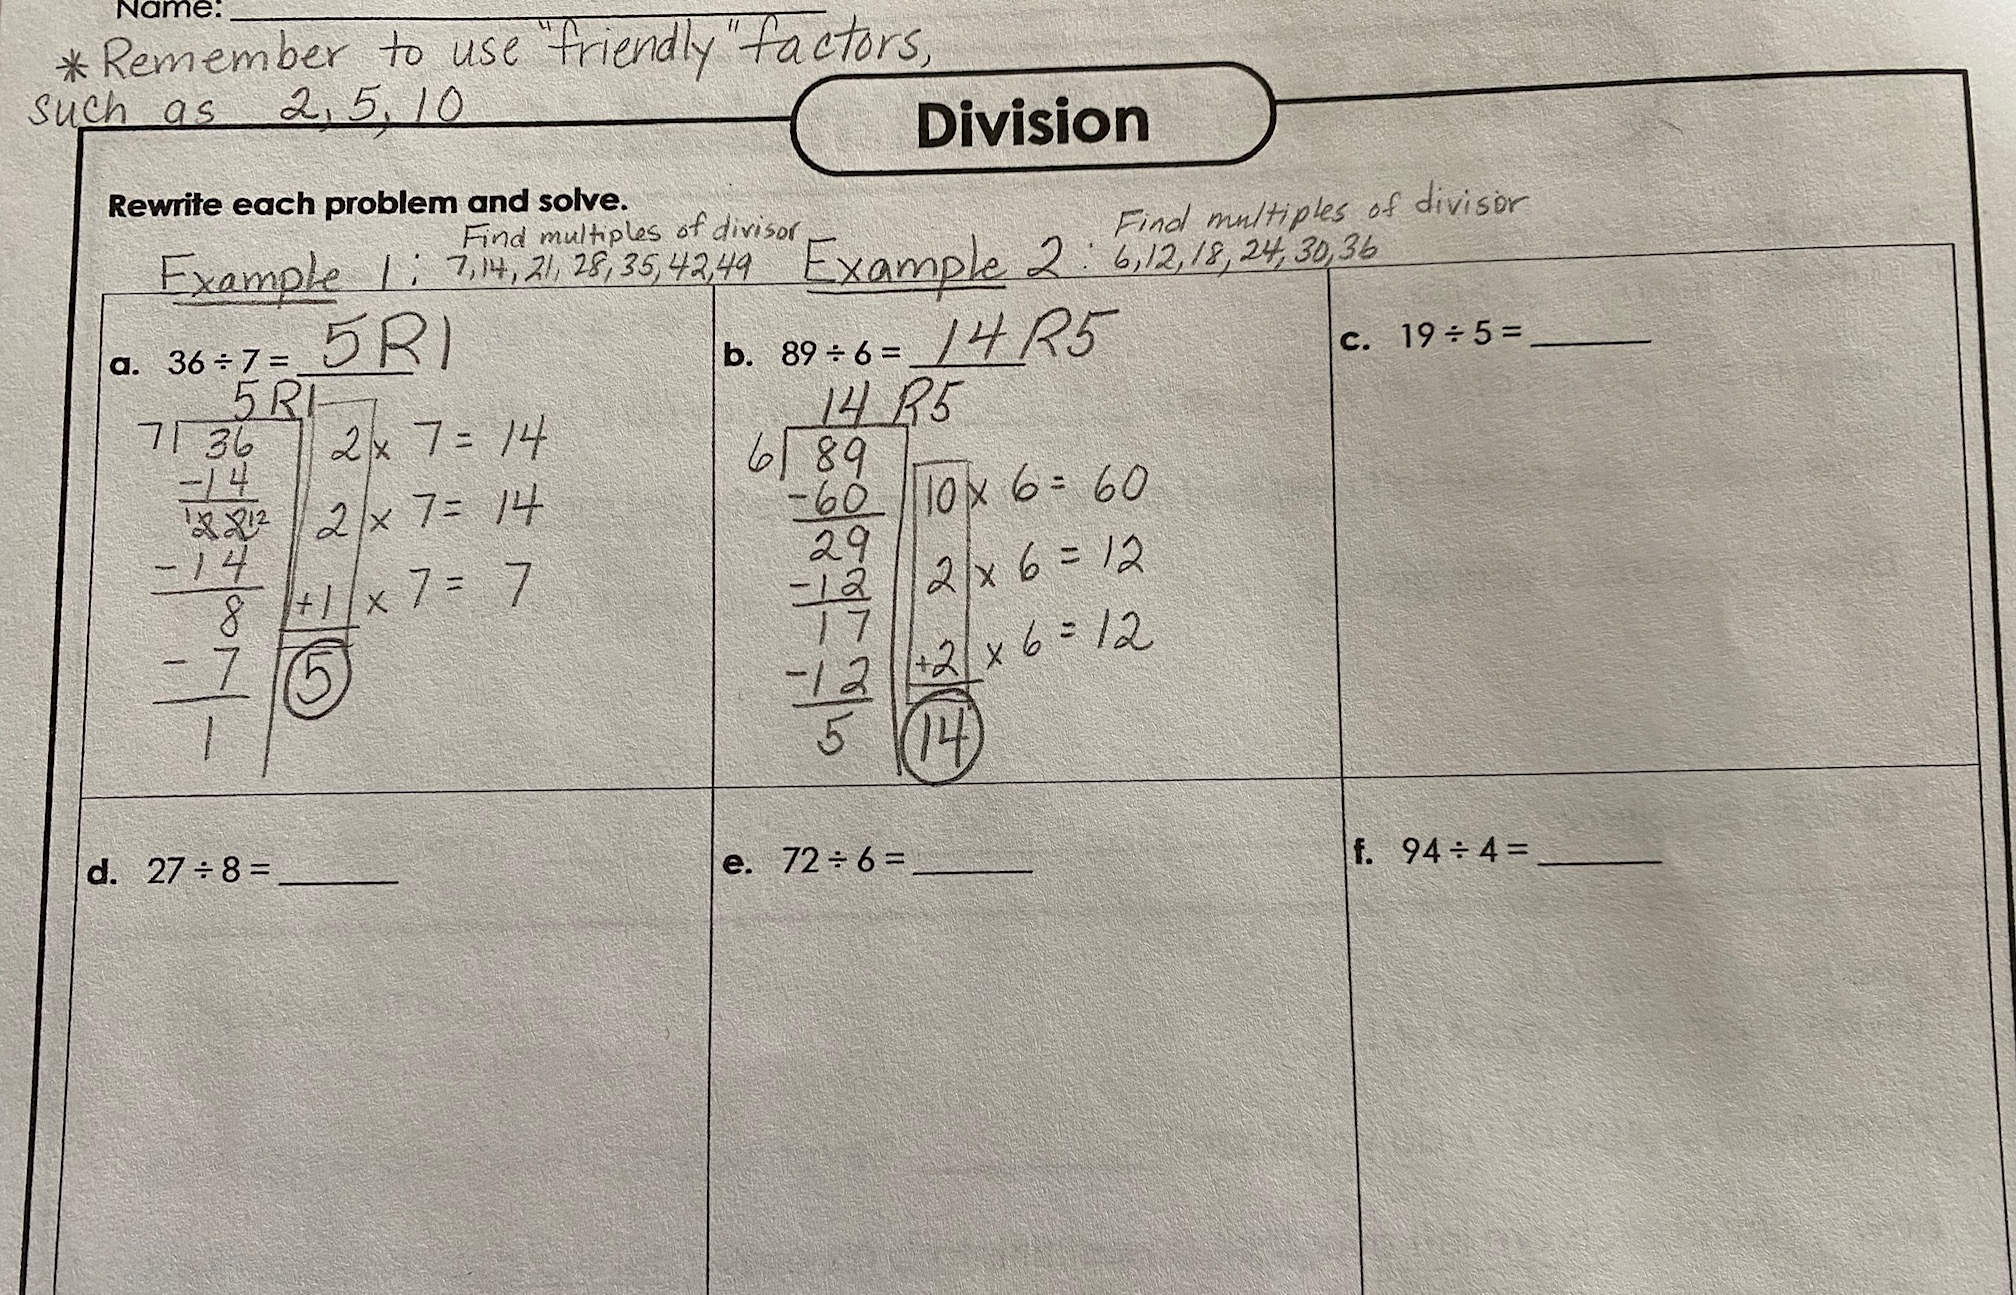 Name:
*Remember to use "friendly" factors,
such as 2, 5, 10
Division
Rewrite each problem and solve.
Find multiples of divisor
Example 1: 7,14,21,28,35,42,49
Find multiples of divisor
Example 2: 6,12,18,24,30,36
a. 36 ÷ 7 = 5R1
5R1
7 36 2 x 7 = 14
-14
22 12 2 x 7 = 14
-14
8 +1 x 7 = 7
-7 5
1
b. 89 ÷ 6 = 14 R5
14 R5
6 89
-60 10 x 6 = 60
29
-12 2 x 6 = 12
17
-12 +2 x 6 = 12
5 14
c. 19 ÷ 5 =
d. 27 ÷ 8 =
e. 72 ÷ 6 =
f. 94 ÷ 4 =